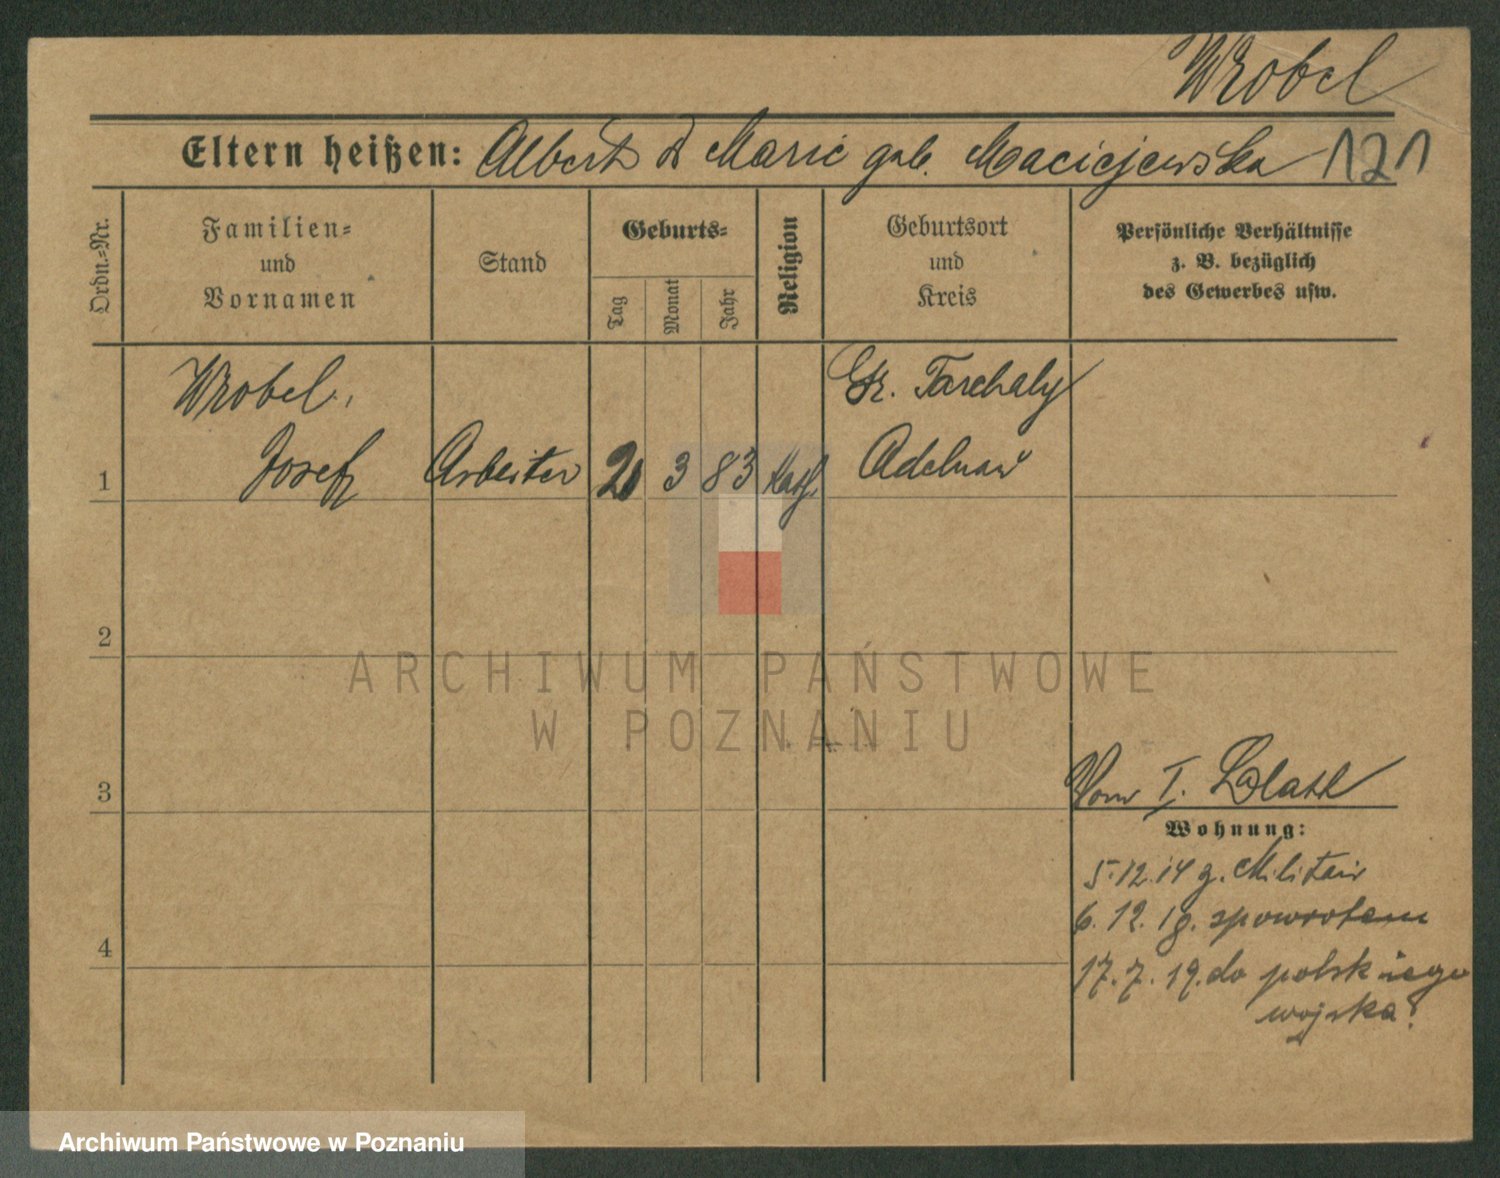 Wrobel
Eltern heißen: Albert & Marie geb. Maciejewska 121
Ordn.-Nr.
Familien-
und
Vornamen
Stand
Geburts-
Tag
Monat
Jahr
Religion
Geburtsort
und
Kreis
Persönliche Verhältnisse
z. B. bezüglich
des Gewerbes usw.
Wrobel,
Josef
Arbeiter
3
83
Kath
Gr. Tarchaly
Adelnau
1
2
3
4
I. Blatt
Wohnung:
5.12.14 z. Militair
6.12.18. spowrotem
17.7.19. do polskiego
wojska.
ARCHIWUM PAŃSTWOWE
W POZNANIU
Archiwum Państwowe w Poznaniu